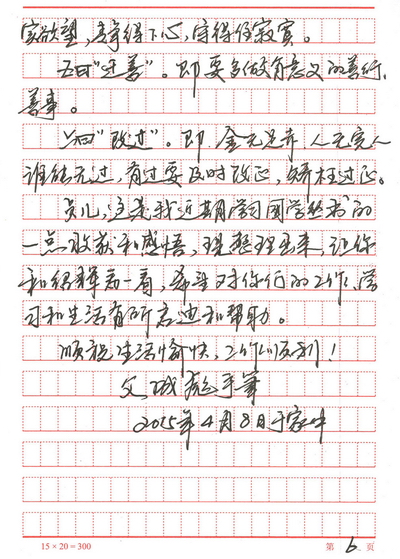 室欲望，专得下心，守得住寂寞。
五曰"迁善"。即要多做有意义的善行、
善事。
六曰"改过"。即，金无足赤，人无完人
谁能无过，有过要及时改正，矫枉过正。
贞儿，这是我近期学习国学丛书的
一点收获和感悟，现整理出来，让你
和绍辉看一看，希望对你们的工作、学
习和生活有所启迪和帮助。
顺祝生活愉快，工作顺利！
父 手笔
2015年4月8日于家中
15×20=300
第 6 页